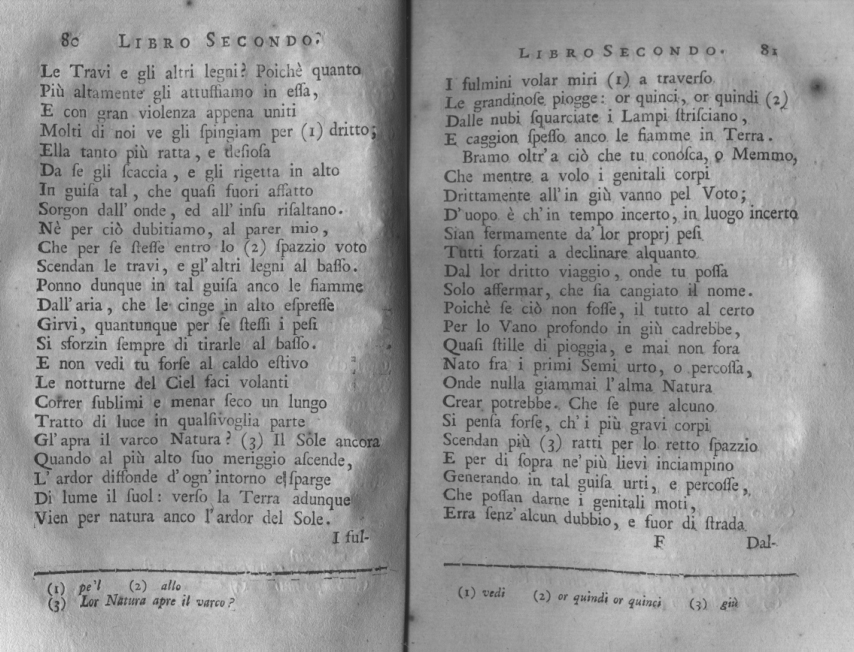 80 LIBRO SECONDO.
Le Travi e gli altri legni? Poichè quanto
Più altamente gli attuffiamo in eſſa,
E con gran violenza appena uniti
Molti di noi ve gli ſpingiam per (1) dritto;
Ella tanto più ratta, e deſioſa
Da ſe gli ſcaccia, e gli rigetta in alto
In guiſa tal, che quaſi fuori affatto
Sorgon dall' onde, ed all' inſu riſaltano.
Nè per ciò dubitiamo, al parer mio,
Che per ſe ſteſſe entro lo (2) ſpazzio voto
Scendan le travi, e gl' altri legni al baſſo.
Ponno dunque in tal guiſa anco le fiamme
Dall' aria, che le cinge in alto eſpreſſe
Girvi, quantunque per ſe ſteſſi i peſi
Si sforzin ſempre di tirarle al baſſo.
E non vedi tu forſe al caldo eſtivo
Le notturne del Ciel faci volanti
Correr ſublimi e menar ſeco un lungo
Tratto di luce in qualſivoglia parte
Gl' apra il varco Natura? (3) Il Sole ancora
Quando al più alto ſuo meriggio aſcende,
L' ardor diffonde d' ogn' intorno e ſparge
Di lume il ſuol: verſo la Terra adunque
Vien per natura anco l' ardor del Sole.
I ful-
(1) pe'l (2) allo
(3) Lor Natura apre il varco?
LIBRO SECONDO. 81
I fulmini volar miri (1) a traverſo
Le grandinoſe piogge: or quinci, or quindi (2)
Dalle nubi ſquarciate i Lampi ſtriſciano,
E caggion ſpeſſo anco le fiamme in Terra.
Bramo oltr' a ciò che tu conoſca, o Memmo,
Che mentre a volo i genitali corpi
Drittamente all' in giù vanno pel Voto;
D' uopo è ch' in tempo incerto, in luogo incerto
Sian fermamente da' lor proprj peſi
Tutti forzati a declinare alquanto
Dal lor dritto viaggio, onde tu poſſa
Solo affermar, che ſia cangiato il nome.
Poichè ſe ciò non foſſe, il tutto al certo
Per lo Vano profondo in giù cadrebbe,
Quaſi ſtille di pioggia, e mai non fora
Nato fra i primi Semi urto, o percoſſa,
Onde nulla giammai l' alma Natura
Crear potrebbe. Che ſe pure alcuno
Si penſa forſe, ch' i più gravi corpi
Scendan più (3) ratti per lo retto ſpazzio
E per di ſopra ne' più lievi inciampino
Generando in tal guiſa urti, e percoſſe,
Che poſſan darne i genitali moti,
Erra ſenz' alcun dubbio, e fuor di ſtrada
F Dal-
(1) vedi (2) or quindi or quinci (3) giù